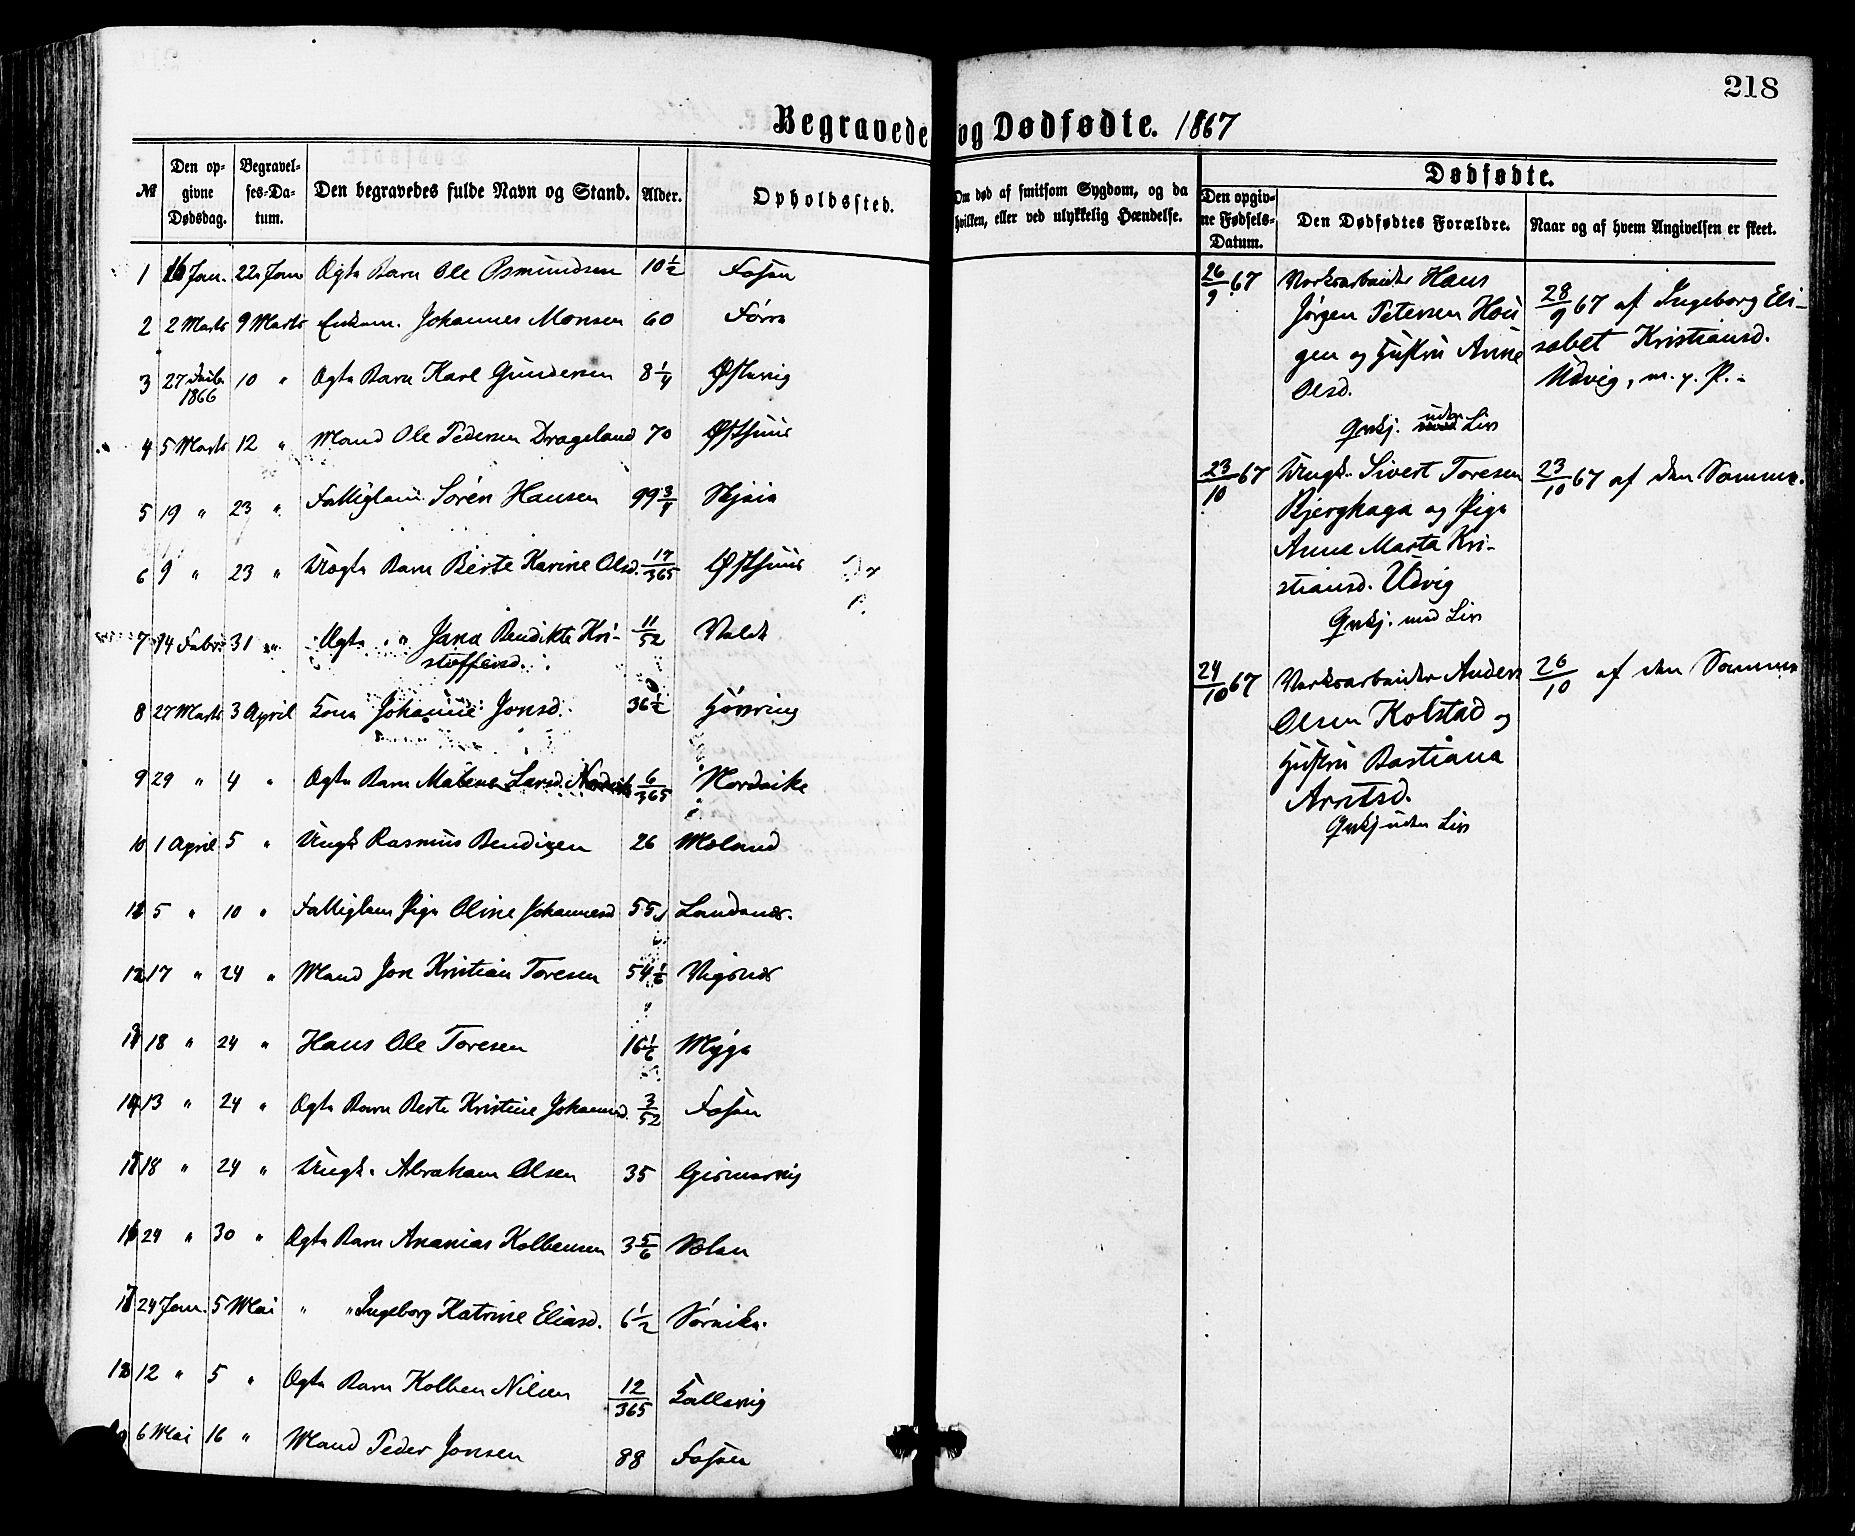 218
Begravede og Dødfødte. 1867
№
Den opgivne Dødsdag.
Begravelses-Datum.
Den begravedes fulde Navn og Stand.
Alder.
Opholdssted.
Om død af smitsom Sygdom, og da hvilken, eller ved ulykkelig Hændelse.
Dødfødte.
Den opgivne Fødsels-Datum.
Den Dødfødtes Forældre.
Naar og af hvem Angivelsen er skeet.
1 16 Jan. 22 Jan Ægte Barn Ole Osmundsen 10 1/2 Fosen
2 2 Marts 9 Marts Enkem. Johannes Monsen 60 Førre
3 27 Decbr 1866 10 " Ægte Barn Karl Gundersen 8 1/4 Østevig
4 5 Marts 12 " Mand Ole Pedersen Drageland 70 Østhuus
5 19 " 23 " Fattiglem Sørén Hansen 99 3/4
6 9 " 23 " Uægte Barn Berte Karine Olsd. 17/365 Østhuus
7 14 Febr 31 " Ægte " Jana Bendikte Kri-
stoffersd. 11/52 Valde
8 27 Marts 3 April Kone Johanne Jonsd. 36 1/2 Hövring
9 29 " 4 " Ægte Barn Malene Larsd. Nordvik 6/365 Nordvike
10 1 April 5 " Ungk Rasmus Bendixen 26 Mæland
11 5 " 10 " Fattiglem Pige Oline Johannesd 55 Landsnæs.
12 17 " 24 " Mand Jon Kristian Toresen 54 1/6 Vigsnæs
13 18 " 24 " Hans Ole Toresen 16 1/6 Myge
14 13 " 24 " Ægte Barn Berte Kristine Johannesd. 3/52 Fosen
15 18 " 24 " Ungk. Abraham Olsen 35 Gismarvig
16 24 " 30 " Ægte Barn Ananias Kolbensen 3 5/6
17 24 Jan. 5 Mai " " Ingeborg Katrine Eliasd. 6 1/2 Sørvike.
18 12 " 5 " Ægte Barn Kolben Nilsen 12/365 Kallevig
19 6 Mai 16 " Mand Peder Jonsen 88 Fosen
26/9 67 Verksarbeider Hans
Jørgen Petersen Hou
gen og Hustru Anne
Olsd.
Gutkj. uden Liv
28/9 67 af Ingeborg Eli-
sabet Kristiansd.
Udvig, m. g. P.
23/10 67 Ungk. Sivert Toresen
Bjerghaga og Pige
Anne Marta Kri-
stiansd. Udvig
Gutkj. med Liv
23/10 67 af den Samme.
24/10 67 Verksarbeider Anders
Olsen Kolstad og
Hustru Bastiana
Arntsd.
Gutkj uden Liv
26/10 af den Samme